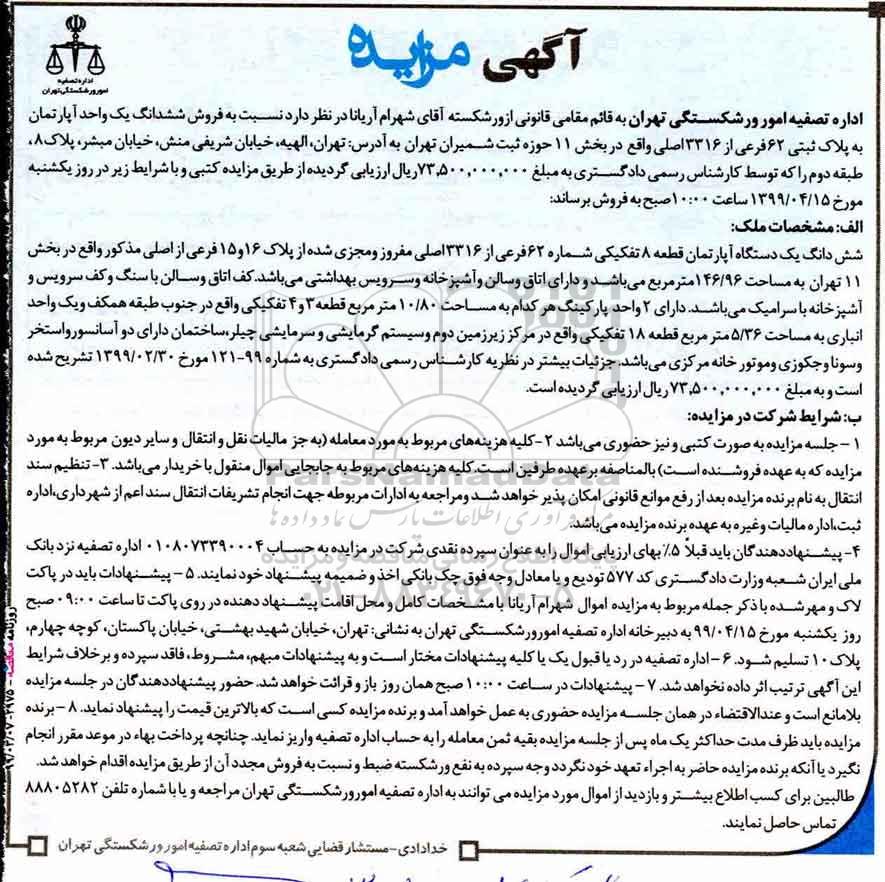 آگهی مزایده
اداره تصفیه
امور ورشکستگی تهران
اداره تصفیه امور ورشکستگی تهران به قائم مقامی قانونی از ورشکسته آقای شهرام آریانا در نظر دارد نسبت به فروش ششدانگ یک واحد آپارتمان
به پلاک ثبتی ۶۲ فرعی از ۳۳۱۶ اصلی واقع در بخش ۱۱ حوزه ثبت شمیران تهران به آدرس: تهران، الهیه، خیابان شریفی منش، خیابان مبشر، پلاک ۸،
طبقه دوم را که توسط کارشناس رسمی دادگستری به مبلغ ۷۳,۵۰۰,۰۰۰,۰۰۰ ریال ارزیابی گردیده از طریق مزایده کتبی و با شرایط زیر در روز یکشنبه
مورخ ۱۳۹۹/۰۴/۱۵ ساعت ۱۰:۰۰ صبح به فروش برساند:
الف: مشخصات ملک:
شش دانگ یک دستگاه آپارتمان قطعه ۸ تفکیکی شماره ۶۲ فرعی از ۳۳۱۶ اصلی مفروز و مجزی شده از پلاک ۱۶ و ۱۵ فرعی از اصلی مذکور واقع در بخش
۱۱ تهران به مساحت ۱۴۶/۹۶ متر مربع می‌باشد و دارای اتاق و سالن و آشپزخانه و سرویس بهداشتی می‌باشد. کف اتاق و سالن با سنگ و کف سرویس و
آشپزخانه با سرامیک می‌باشد. دارای ۲ واحد پارکینگ هر کدام به مساحت ۱۰/۸۰ متر مربع قطعه ۳ و ۴ تفکیکی واقع در جنوب طبقه همکف و یک واحد
انباری به مساحت ۵/۳۶ متر مربع قطعه ۱۸ تفکیکی واقع در مرکز زیرزمین دوم و سیستم گرمایشی و سرمایشی چیلر، ساختمان دارای دو آسانسور و استخر
و سونا و جکوزی و موتور خانه مرکزی می‌باشد. جزئیات بیشتر در نظریه کارشناس رسمی دادگستری به شماره ۹۹-۱۲۱ مورخ ۱۳۹۹/۰۲/۳۰ تشریح شده
است و به مبلغ ۷۳,۵۰۰,۰۰۰,۰۰۰ ریال ارزیابی گردیده است.
ب: شرایط شرکت در مزایده:
۱- جلسه مزایده به صورت کتبی و نیز حضوری می‌باشد ۲- کلیه هزینه‌های مربوط به مورد معامله (به جز مالیات نقل و انتقال و سایر دیون مربوط به مورد
مزایده که به عهده فروشنده است) بالمناصفه بر عهده طرفین است. کلیه هزینه‌های مربوط به جابجایی اموال منقول با خریدار می‌باشد. ۳- تنظیم سند
انتقال به نام برنده مزایده بعد از رفع موانع قانونی امکان پذیر خواهد شد و مراجعه به ادارات مربوطه جهت انجام تشریفات انتقال سند اعم از شهرداری، اداره
ثبت، اداره مالیات و غیره به عهده برنده مزایده می‌باشد.
۴- پیشنهاددهندگان باید قبلاً ۵٪ بهای ارزیابی اموال را به عنوان سپرده نقدی شرکت در مزایده به حساب ۰۱۰۸۰۷۳۳۹۰۰۰۴ اداره تصفیه نزد بانک
ملی ایران شعبه وزارت دادگستری کد ۵۷۷ تودیع و یا معادل وجه فوق چک بانکی اخذ و ضمیمه پیشنهاد خود نمایند. ۵- پیشنهادات باید در پاکت
لاک و مهر شده با ذکر جمله مربوط به مزایده اموال شهرام آریانا با مشخصات کامل و محل اقامت پیشنهاد دهنده در روی پاکت تا ساعت ۰۹:۰۰ صبح
روز یکشنبه مورخ ۹۹/۰۴/۱۵ به دبیرخانه اداره تصفیه امور ورشکستگی تهران به نشانی: تهران، خیابان شهید بهشتی، خیابان پاکستان، کوچه چهارم،
پلاک ۱۰ تسلیم شود. ۶- اداره تصفیه در رد یا قبول یک یا کلیه پیشنهادات مختار است و به پیشنهادات مبهم، مشروط، فاقد سپرده و بر خلاف شرایط
این آگهی ترتیب اثر داده نخواهد شد. ۷- پیشنهادات در ساعت ۱۰:۰۰ صبح همان روز باز و قرائت خواهد شد. حضور پیشنهاددهندگان در جلسه مزایده
بلامانع است و عندالاقتضاء در همان جلسه مزایده حضوری به عمل خواهد آمد و برنده مزایده کسی است که بالاترین قیمت را پیشنهاد نماید. ۸- برنده
مزایده باید ظرف مدت حداکثر یک ماه پس از جلسه مزایده بقیه ثمن معامله را به حساب اداره تصفیه واریز نماید. چنانچه پرداخت بهاء در موعد مقرر انجام
نگیرد یا آنکه برنده مزایده حاضر به اجراء تعهد خود نگردد وجه سپرده به نفع ورشکسته ضبط و نسبت به فروش مجدد آن از طریق مزایده اقدام خواهد شد.
طالبین برای کسب اطلاع بیشتر و بازدید از اموال مورد مزایده می توانند به اداره تصفیه امور ورشکستگی تهران مراجعه و یا با شماره تلفن ۸۸۸۰۵۲۸۲
تماس حاصل نمایند.
خدادادی-مستشار قضایی شعبه سوم اداره تصفیه امور ورشکستگی تهران
ParsNamadData
۰۲۱-۸۸۳۴۹۶۷۰-۵